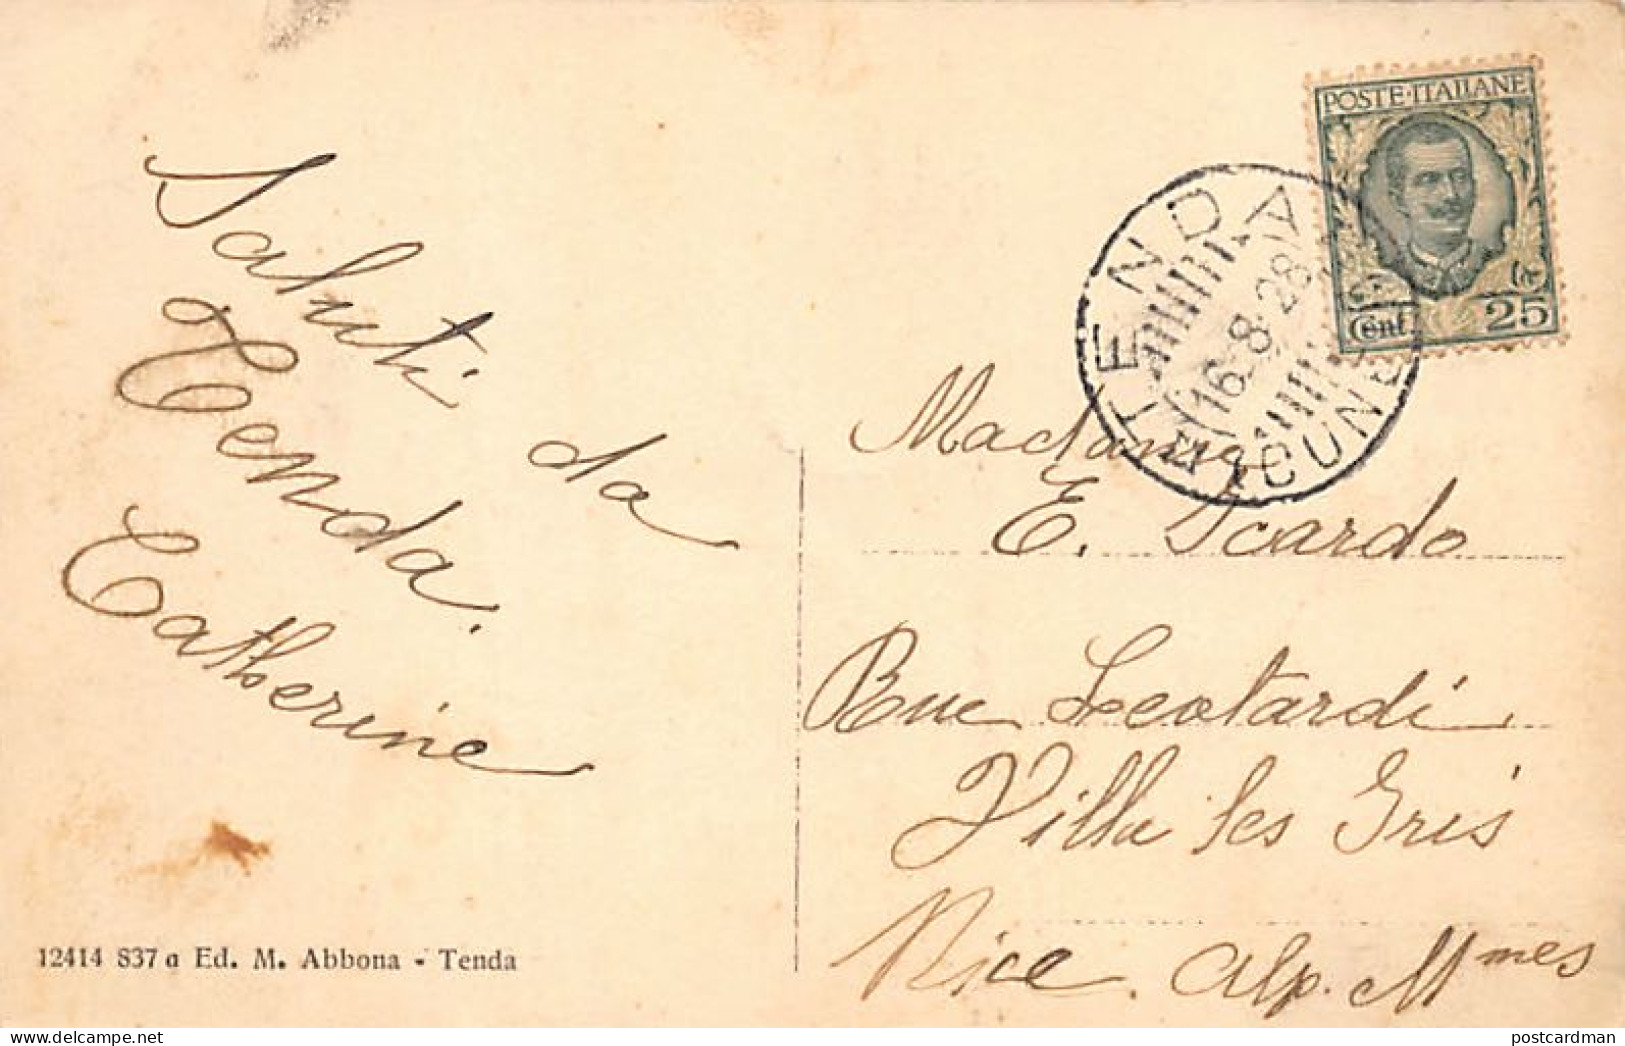 Saluti da
Tenda.
Catherine
12414 837 a Ed. M. Abbona - Tenda
POSTE·ITALIANE
Cent. 25
TENDA
16-8-28
(CUNEO)
Madame
E. Scardo
Rue Leotardi
Villa les Iris
Nice. Alp. Mmes
postcardman